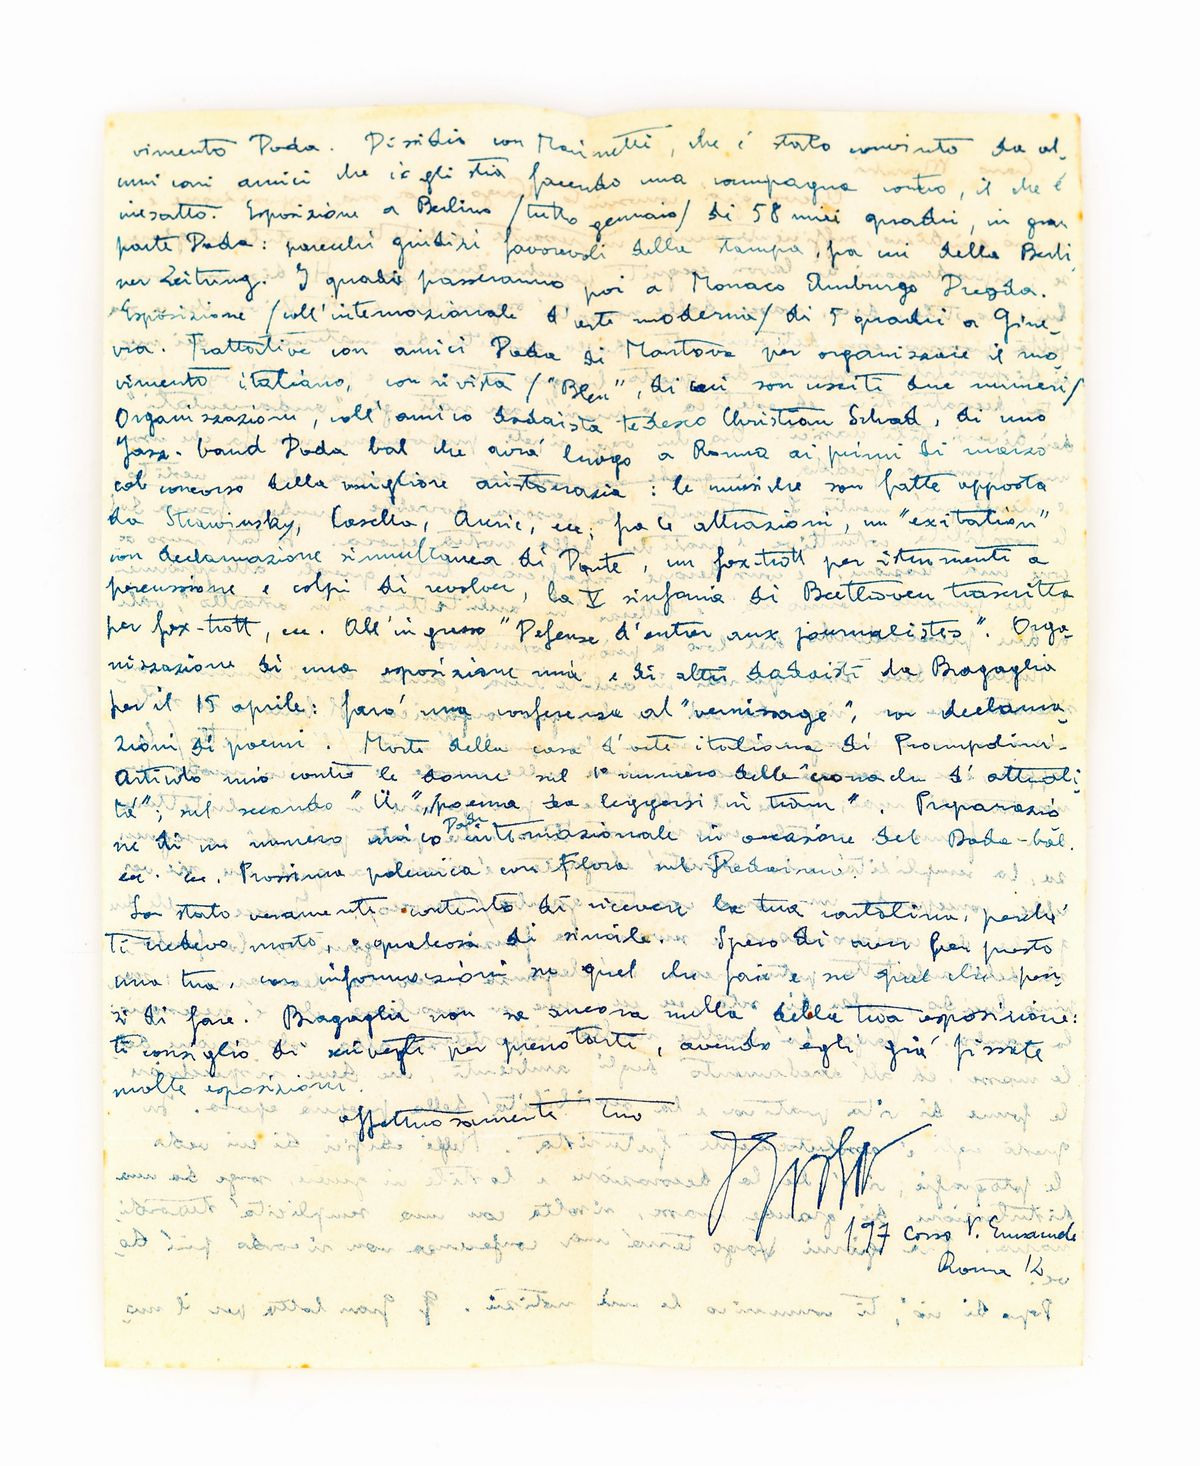 vimento Dada. Dissidio con Marinetti, che è stato convinto da al-
cuni suoi amici che io gli stia facendo una campagna contro, il che è
inesatto. Esposizione a Berlino /tutto gennaio/ di 58 miei quadri, in gran
parte Dada: parecchi giudizi favorevoli della stampa, fra cui della Berli-
ner Zeitung. I quadri passeranno poi a Monaco Amburgo Dresda.
Esposizione /coll'internazionale d'arte moderna/ di 5 quadri a Gine-
vra. Trattative con amici Dada di Mantova per organizzare il mo-
vimento italiano, con rivista /"Bleu", di cui son usciti due numeri/
Organizzazione, coll'amico dadaista tedesco Christian Schad, di uno
Jazz-band Dada bal che avrà luogo a Roma ai primi di marzo
col concorso della migliore aristocrazia: le musiche son fatte apposta
da Strawinsky, Casella, Auric, ecc; fra le attrazioni, un "exitation"
con declamazione simultanea di Dante, un fox-trott per istrumenti a
percussione e colpi di revolver, la V sinfonia di Beethoven trascritta
per fox-trott, ecc. All'ingresso "Défense d'entrer aux journalistes". Orga-
nizzazione di una esposizione mia e di altri dadaisti da Bragaglia
per il 15 aprile: farò una conferenza al "vernissage", con declama-
zioni di poemi. Morte della casa d'arte italiana di Prampolini-
Articolo mio contro le donne sul 1° numero delle "cronache d'attuali-
tà"; sul secondo poema da leggersi in tram". Preparazio
ne di un numero unico Dada internazionale in occasione del Dada-bal.
ecc. ecc. Prossima polemica con Flora sul Dadaismo.
Son stato veramente contento di ricevere la tua cartolina, perchè
ti credevo morto, o qualcosa di simile. Spero di aver ben presto
una tua, con informazioni su quel che fai e su quel che pen-
si di fare. Bragaglia non sa ancora nulla della tua esposizione:
ti consiglio di scrivergli per prenotarti, avendo egli già fissate
molte esposizioni.
affettuosamente tuo
197 Corso V. Emanuele
Roma 12